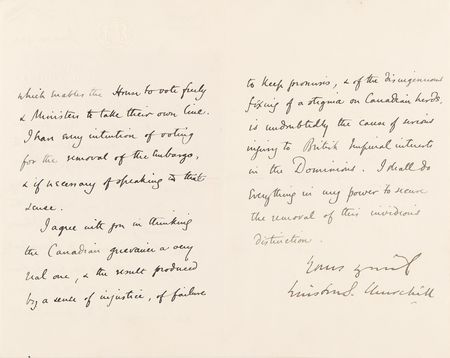 which enables the House to vote freely
& Ministers to take their own line.
I have every intention of voting
for the removal of the embargo,
& if necessary of speaking in that
sense.
I agree with you in thinking
the Canadian grievance a very
real one, & the result produced
by a sense of injustice, of failure
to keep promises, & of the disingenuous
fixing of a stigma on Canadian herds.
is undoubtedly the cause of serious
injury to British Imperial interests
in the Dominions. I shall do
everything in my power to secure
the removal of this invidious
distinction.
Yours
Winston S. Churchill